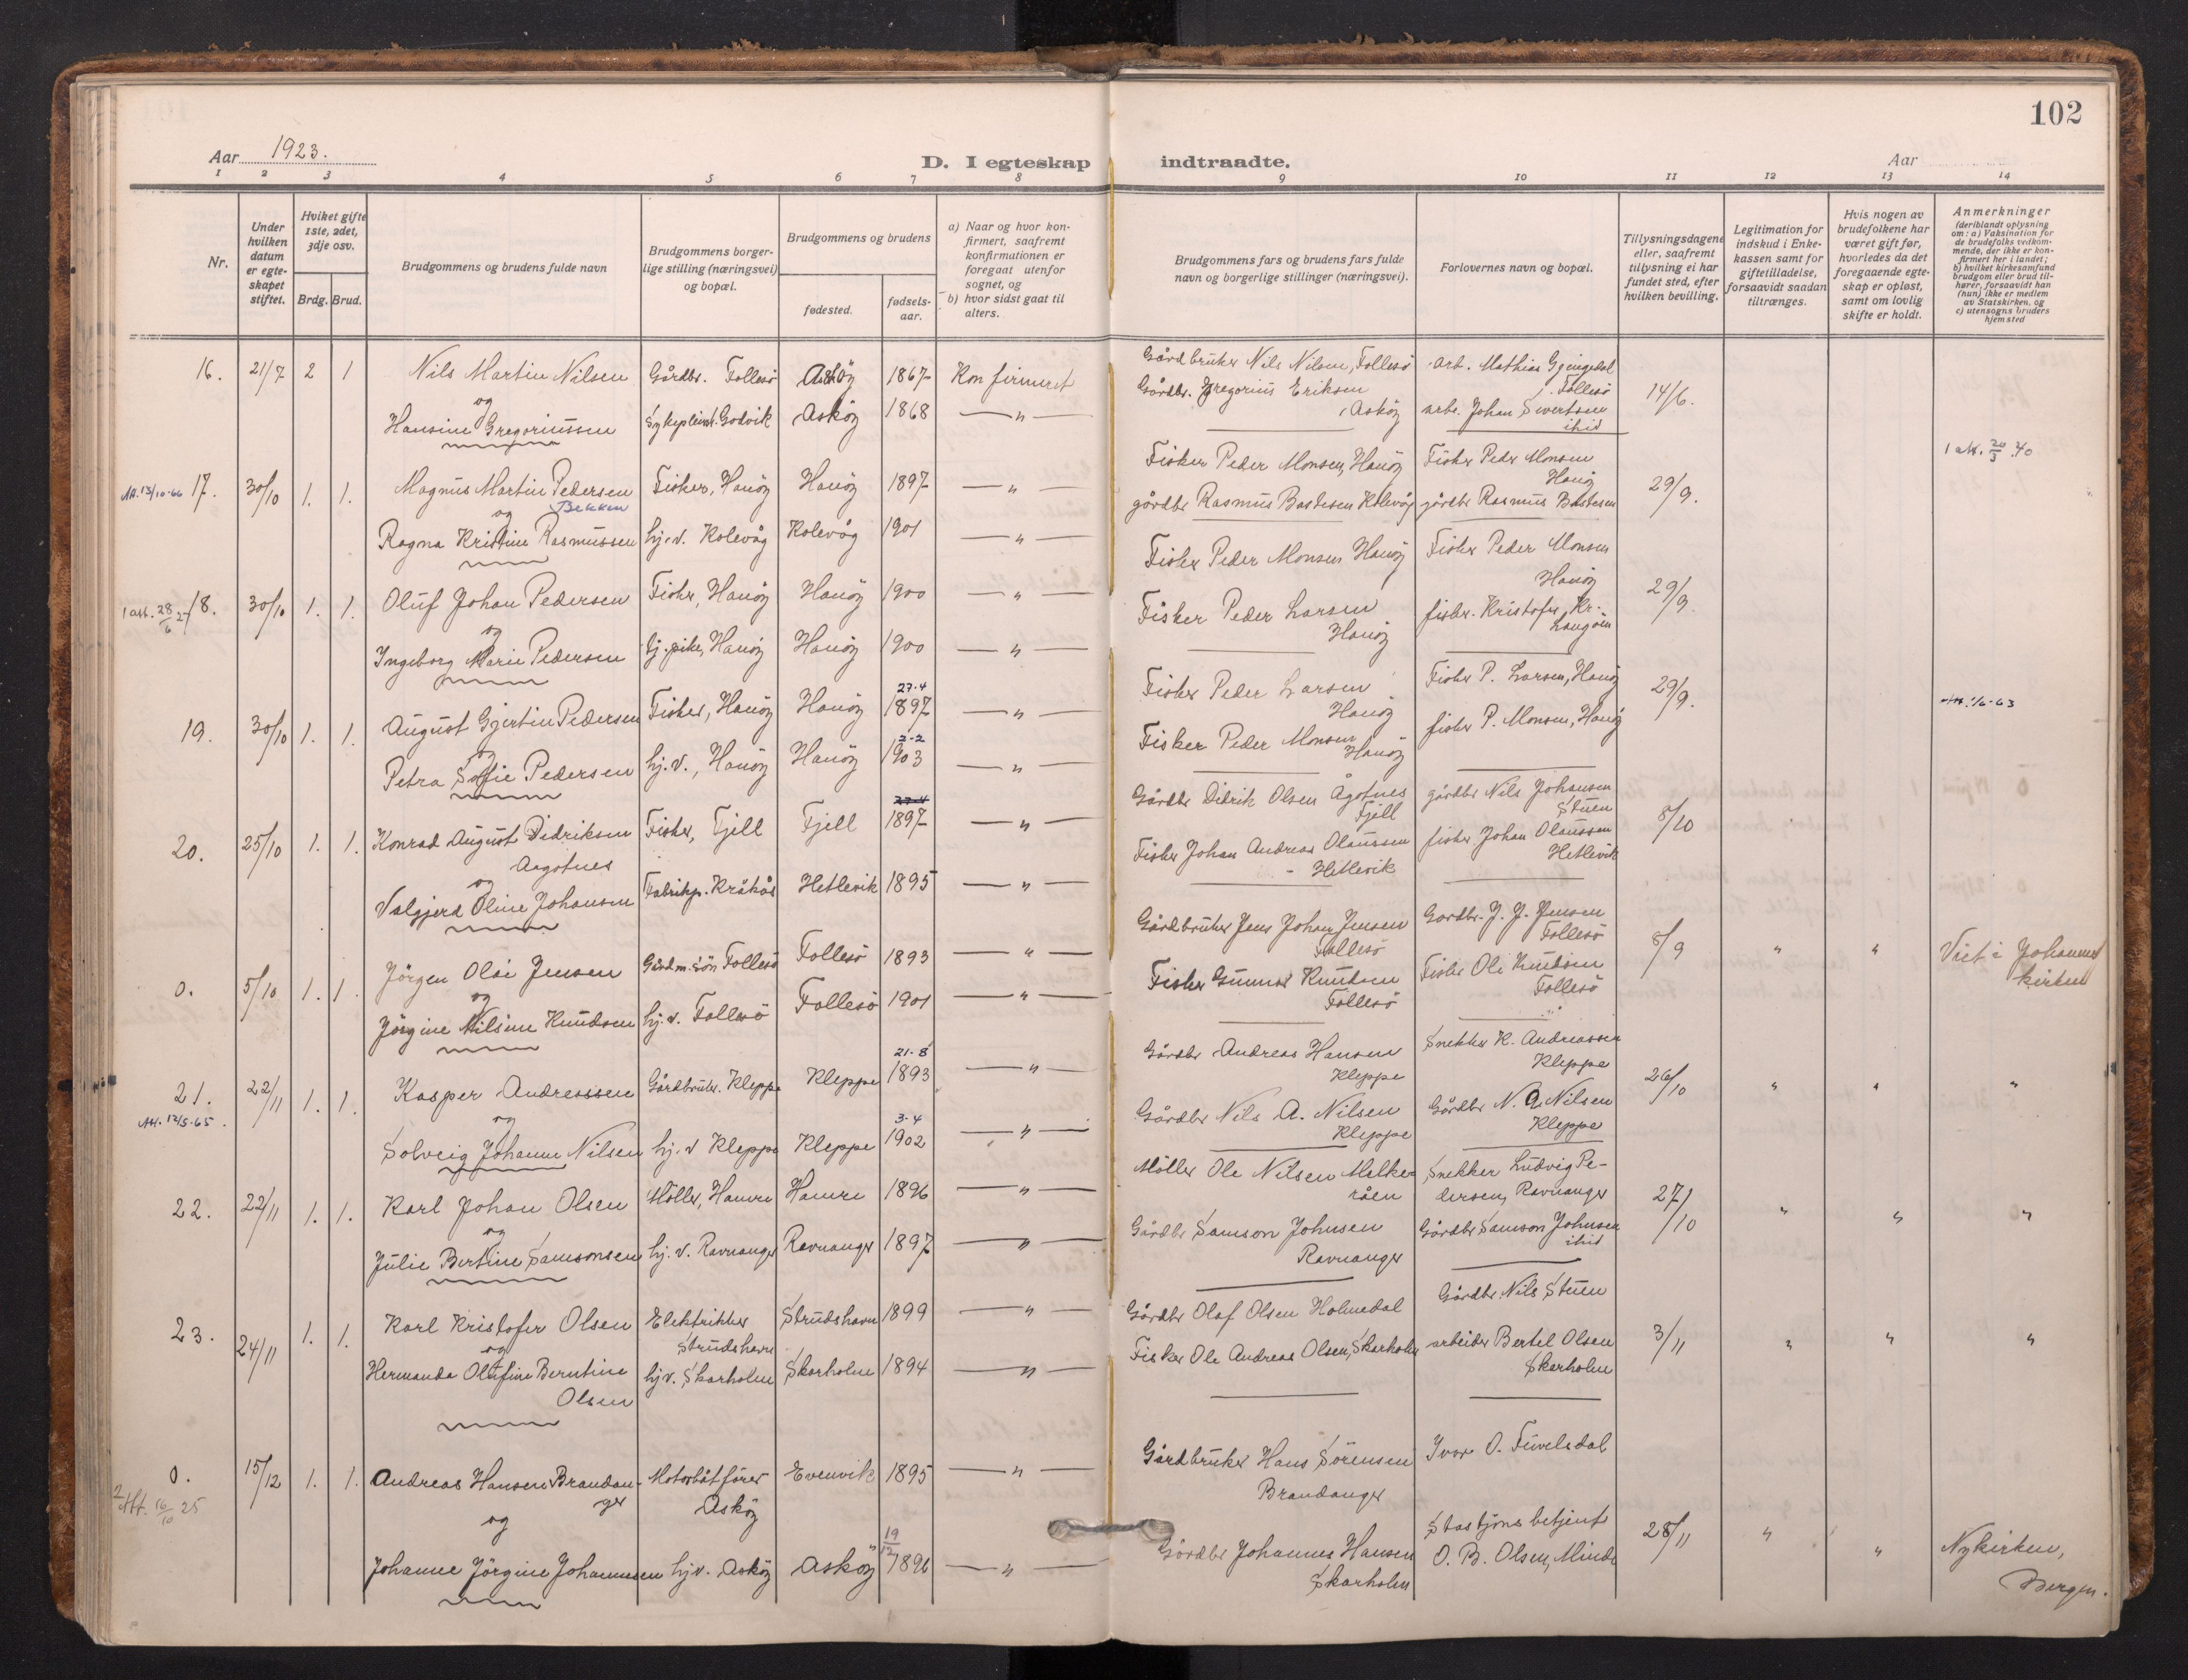 102
Aar 1923.
D. I egteskap indtraadte.
Aar
1 2 3 4 5 6 7 8 9 10 11 12 13 14
Nr.
Under hvilken datum er egteskapet stiftet.
Hvilket gifte 1ste, 2det, 3dje osv.
Brdg. Brud.
Brudgommens og brudens fulde navn
Brudgommens borgerlige stilling (næringsvei) og bopæl.
Brudgommens og brudens
fødested.
fødsels-aar.
a) Naar og hvor konfirmert, saafremt konfirmationen er foregaat utenfor sognet, og
b) hvor sidst gaat til alters.
Brudgommens fars og brudens fars fulde navn og borgerlige stillinger (næringsvei).
Forlovernes navn og bopæl.
Tillysningsdagene eller, saafremt tillysning ei har fundet sted, efter hvilken bevilling.
Legitimation for indskud i Enkekassen samt for giftetilladelse, forsaavidt saadan tiltrænges.
Hvis nogen av brudefolkene har været gift før, hvorledes da det foregaaende egteskap er opløst, samt om lovlig skifte er holdt.
Anmerkninger (deriblandt oplysning om: a) Vaksination for de brudefolks vedkommende, der ikke er konfirmert her i landet; b) hvilket kirkesamfund brudgom eller brud tilhører, forsaavidt han (hun) ikke er medlem av Statskirken, og c) utensogns bruders hjemsted
16. 21/7 2 1 Nils Martin Nilsen Gårdbr. Follesö Asköy 1867 Konfirmeret Gårdbruker Nils Nilsen, Follesö arb. Mathias Follesö 14/6.
og
Hansine Gregoriussen Godvik Asköy 1868 — " — Gårdbr. Gregorius Eriksen, Asköy arb. Johan Sivertsen ibid
1 att. 20/3 40
Att. 13/10-66 17. 30/10 1. 1. Magnus Martin Pedersen Bekken Fisker, Hanöy Hanöy 1897 — " — Fisker Peder Monsen, Hanöy Fisker Peder Monsen Hanöy 29/9.
og
Ragna Kristine Rasmussen hj.v. Kolevåg Kolevåg 1901 — " — gårdbr Rasmus Bastesen Kolevåg gårdbr Rasmus Bastesen
1 att. 28/6 27 18. 30/10 1. 1. Oluf Johan Pedersen Fisker, Hanöy Hanöy 1900 — " — Fisker Peder Monsen Hanöy Fisker Peder Monsen Hanöy 29/9.
og
Ingeborg Marie Pedersen hj.pike, Hanöy Hanöy 1900 — " — Fisker Peder Larsen Hanöy fisker. Kristofer Kr. Langöen
19. 30/10 1. 1. August Gjertin Pedersen Fisker, Hanöy Hanöy 27-4 1897 — " — Fisker Peder Larsen Hanöy Fisker P. Larsen, Hanöy 29/9. att. 1/6-63
og
Petra Sofie Pedersen hj.v., Hanöy Hanöy 2-2 1903 — " — Fisker Peder Monsen Hanöy fisker P. Monsen, Hanöy
20. 25/10 1. 1. Konrad August Didriksen Aagotnes Fisker, Fjell Fjell 27-4 1897 — " — Gårdbr Didrik Olsen Ågotnes Fjell gårdbr Nils Johansen Stuen 8/10
og
Valgjerd Oline Johansen Fabrikp. Kråkås Hetlevik 1895 — " — Fisker Johan Andreas Olaussen - Hetlevik fisker Johan Olaussen Hetlevik
0. 5/10 1. 1. Jörgen Olai Jensen Gårdm.sön Follesö Follesö 1893 — " — Gårdbruker Jens Johan Jensen Follesö Gardbr. J. J. Jensen Follesö 8/9 " " Viet i Johannes kirken
og
Jörgine Nilsine Knudsen hj.v. Follesö Follesö 1901 — " — Fisker Gunnar Knudsen Follesö Fisker Ole Knudsen Follesö
21. 22/11 1. 1. Kasper Andreassen Gårdbruker. Kleppe Kleppe 21-8 1893 — " — Gårdbr Andreas Hansen Kleppe Snekker K. Andreassen Kleppe 26/10 " " "
Att. 12/5-65. og
Solveig Johanne Nilsen hj.v Kleppe Kleppe 3-4 1902 — " — Gårdbr Nils A. Nilsen Kleppe Gårdbr N. A. Nilsen Kleppe
22. 22/11 1. 1. Karl Johan Olsen Möller, Hamre Hamre 1896 — " — Möller Ole Nilsen Melkeråen Snekker Ludvig Pedersen, Ravnanger 27/10 " " "
og
Julie Bertine Samsonsen hj.v. Ravnanger Ravnanger 1897 — " — Gårdbr Samson Johnsen Ravnanger Gårdbr Samson Johnsen ibid
23. 24/11 1. 1. Karl Kristofer Olsen Elektriker Strudshavn Strudshavn 1899 — " — Gårdbr Olaf Olsen Holmedal Gårdbr. Nils Stuen 3/11 " " "
og
Hermanda Olufine Berntine Olsen hjv. Skarholm Skarholm 1894 — " — Fisker Ole Andreas Olsen, Skarholm arbeider Bertel Olsen Skarholm
0. 15/12 1. 1. Andreas Hansen Brandanger Motorbåtförer Asköy Evenvik 1895 — " — Gårdbruker Hans Sörensen Brandanger Ivar O. 28/11 " " Nykirken, Bergen.
2 Att. 16/10 25 og
Johanne Jörgine Johannessen hjv. Asköy Asköy 19/12 1896 — " — Gårdbr Johannes Hansen Skarholm Stastjonsbetjent O. B. Olsen, Minde